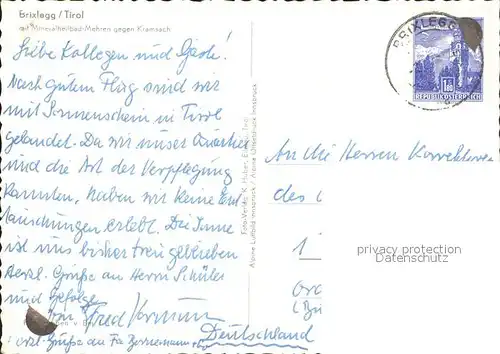 Brixlegg / Tirol
mit Mineralheilbad Mehren gegen Kramsach
Liebe Kollegen und Gäste!
Nach gutem Flug sind wir
mit Sonnenschein in Tirol
gelandet. Da wir unser Quartier
und die Art der Verpflegung
kannten, haben wir keine Ent
täuschungen erlebt. Die Sonne
ist uns bisher treu geblieben
Herzl. Grüße an Herrn Schüler
und Gefolge
Fred
Herzl. Grüße an
Foto-Verlag K.
Alpine Luftbild Innsbruck
BRIXLEGG
REPUBLIK ÖSTERREICH
An die Herren Korrektoren
des
1
Deutschland
privacy protection
AnsichtskartenVersand.com